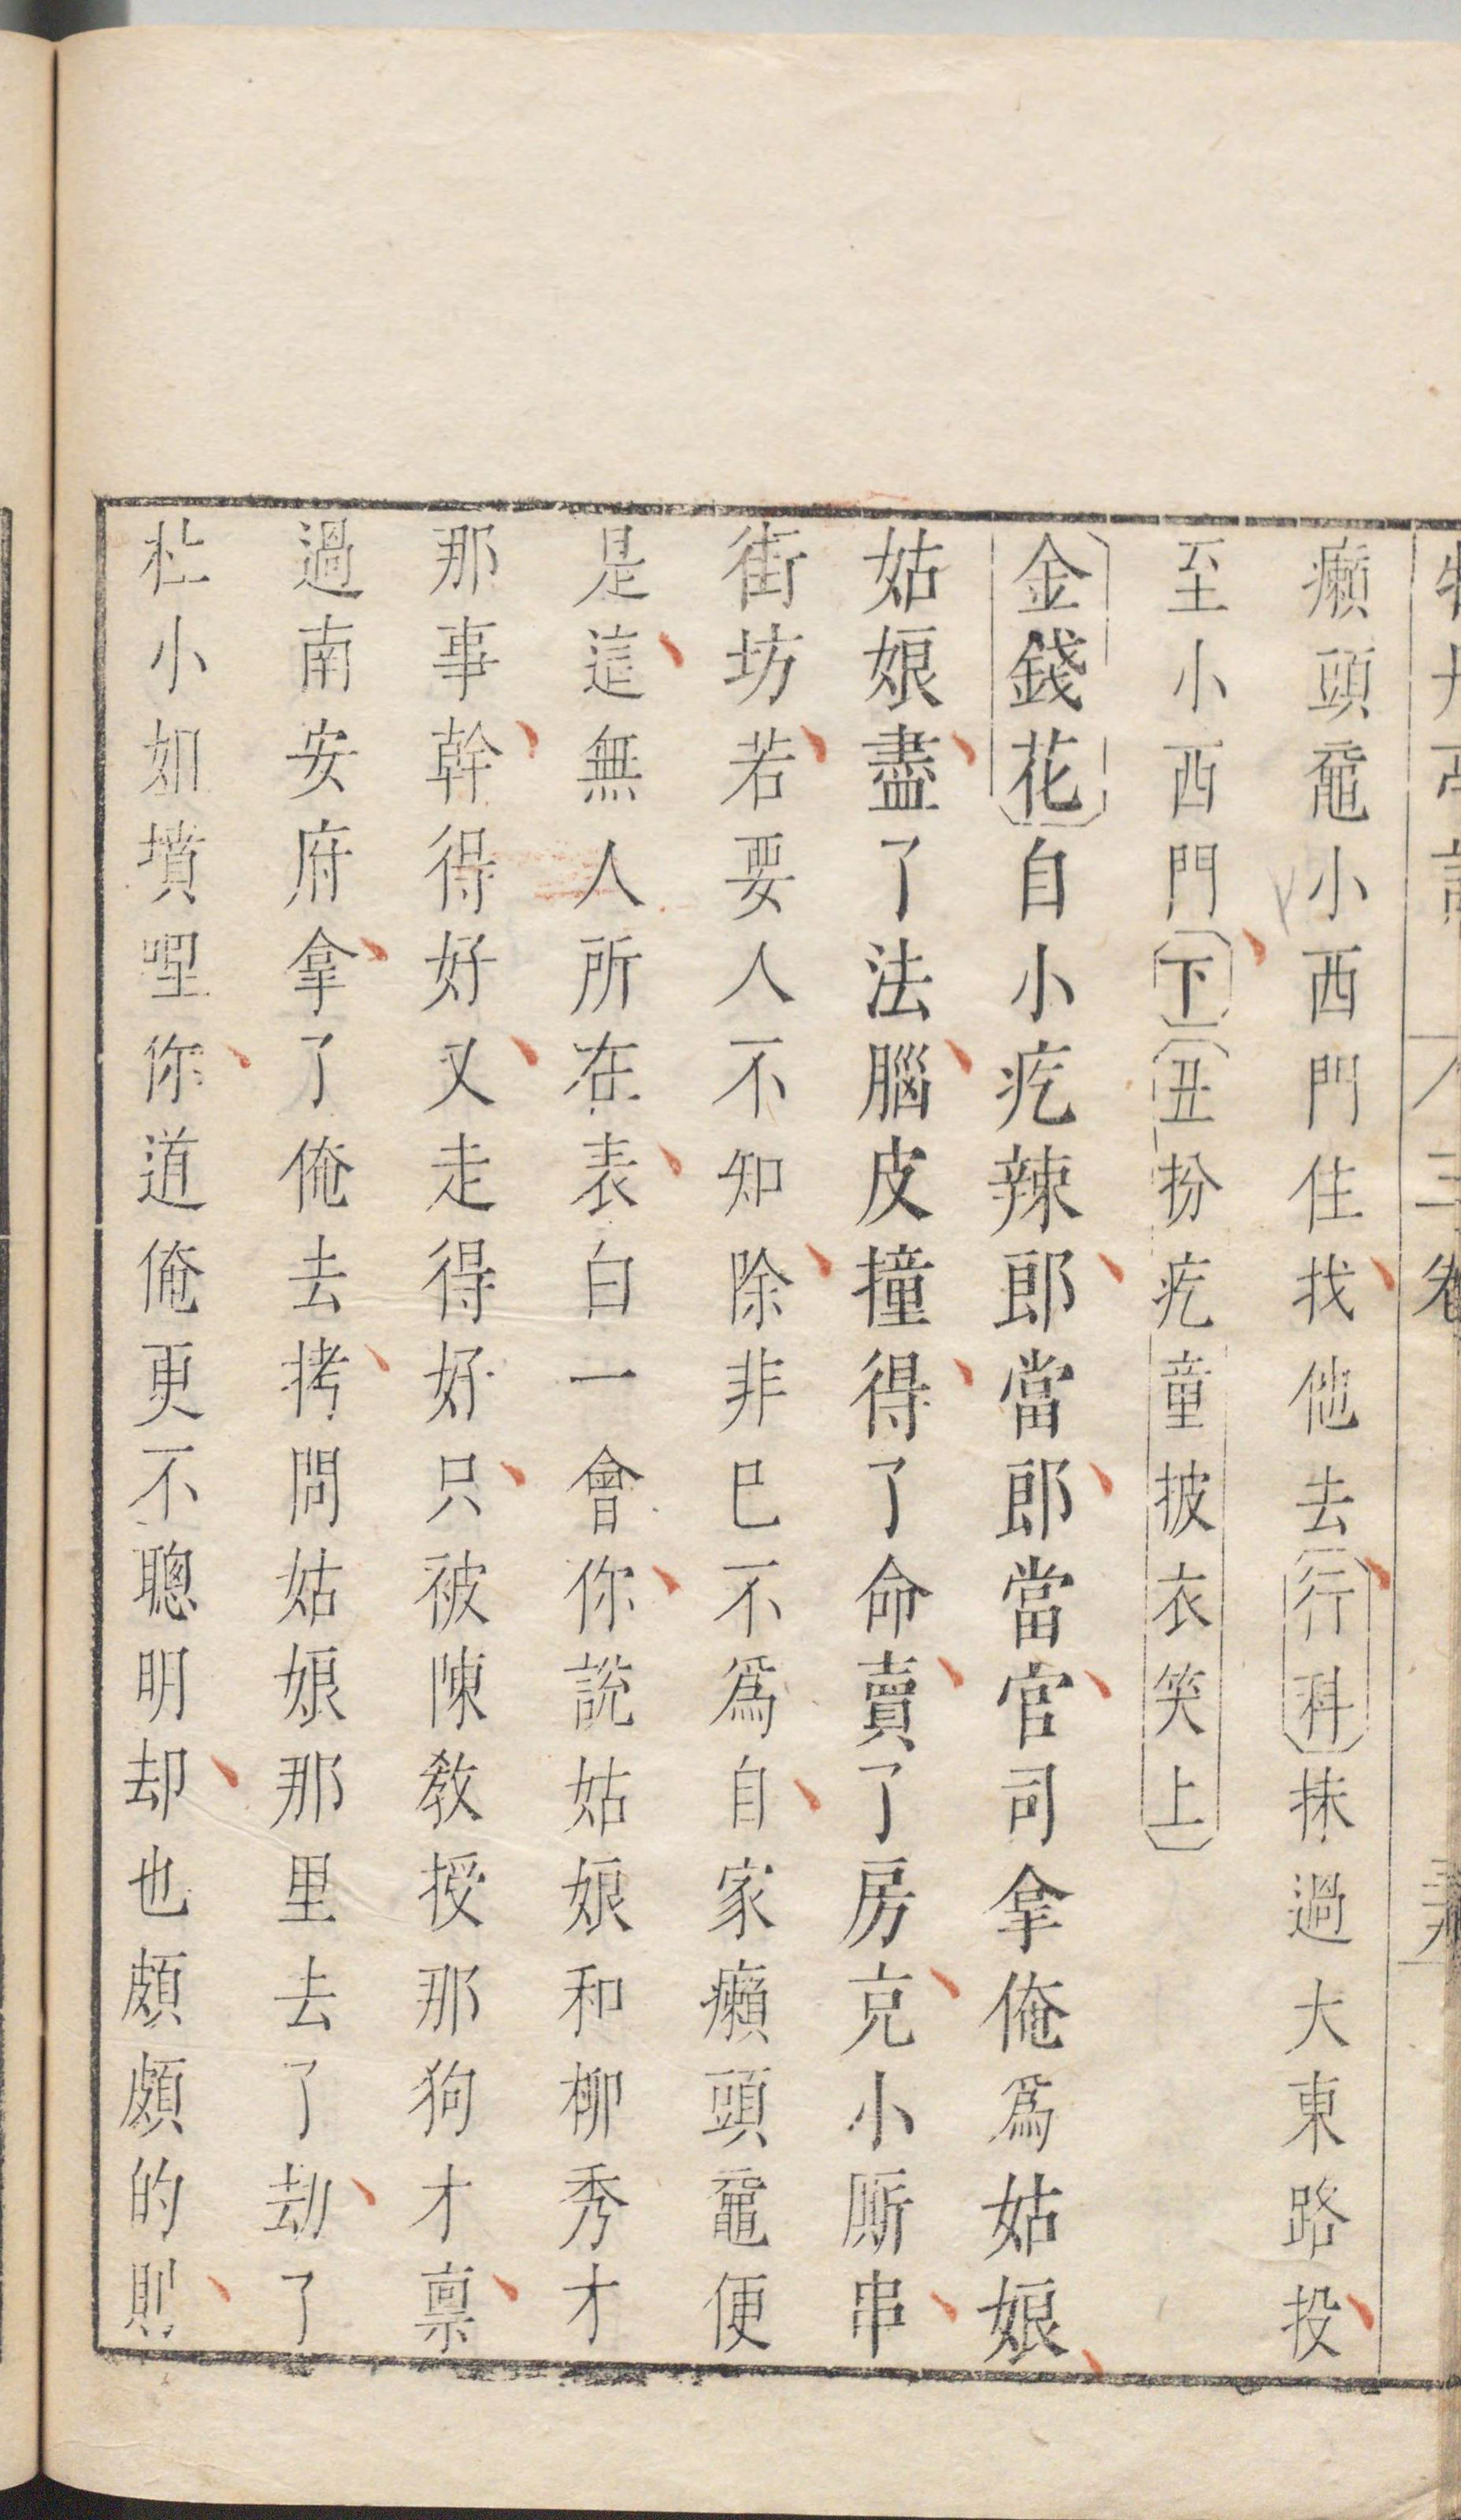 癩頭黿小西門住找他去行科抹過大東路投
至小西門下丑扮疙童披衣笑上
金錢花自小疙辣郎當郎當官司拿俺爲姑娘
姑娘盡了法腦皮撞得了命賣了房克小厮串
街坊若要人不知除非巳不爲自家癩頭黿便
是這無人所在表白一會你說姑娘和柳秀才
那事幹得好又走得好只被陳教授那狗才禀
過南安府拿了俺去拷問姑娘那里去了劫了
杜小姐墳哩你道俺更不聰明却也頗頗的則